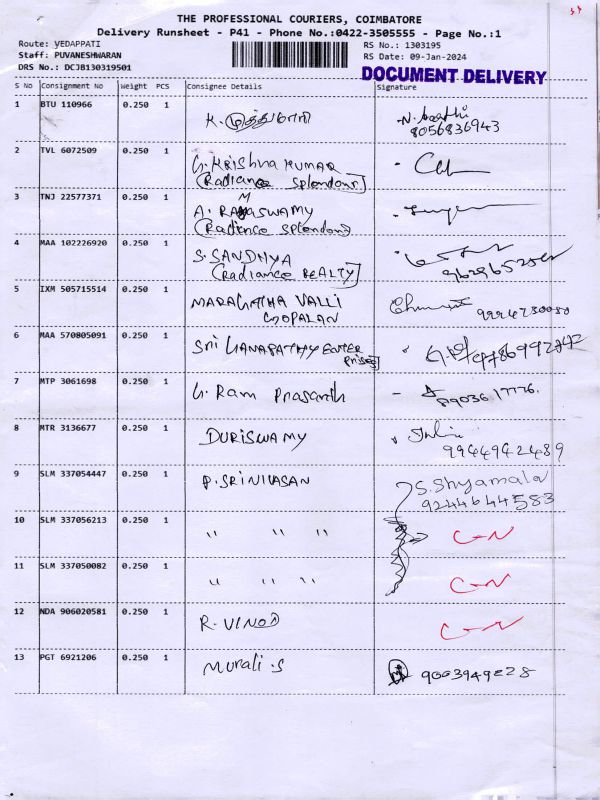 THE PROFESSIONAL COURIERS, COIMBATORE
Delivery Runsheet - P41 - Phone No.:0422-3505555 - Page No.:1
Route: VEDAPPATI
Staff: PUVANESHWARAN
DRS No.: DCJB130319501
RS No.: 1303195
RS Date: 09-Jan-2024
DOCUMENT DELIVERY
S No Consignment No Weight PCS Consignee Details Signature
1 BTU 110966 0.250 1 K. முத்துமாரி
8056836943
2 TVL 6072509 0.250 1 G. KRISHNA KUMAR
(Radiance Splendour)
3 TNJ 22577371 0.250 1 A. RAMASWAMY
(Radience Splendour)
4 MAA 102226920 0.250 1 S. SANDHYA
(Radiance REALTY)
5 IXM 505715514 0.250 1 MARAGATHA VALLI
GOPALAN
6 MAA 570805091 0.250 1 Sri GANAPATHY ENTER
Prises
7 MTP 3061698 0.250 1 G. Ram Prasanth
8 MTR 3136677 0.250 1 DURISWAMY
9944942489
9 SLM 337054447 0.250 1 P. SRINIVASAN S. Shyamala
9244644583
10 SLM 337056213 0.250 1 " " "
11 SLM 337050082 0.250 1 " " "
12 NDA 906020581 0.250 1 R. VINOD
13 PGT 6921206 0.250 1 Murali.S 9003949228